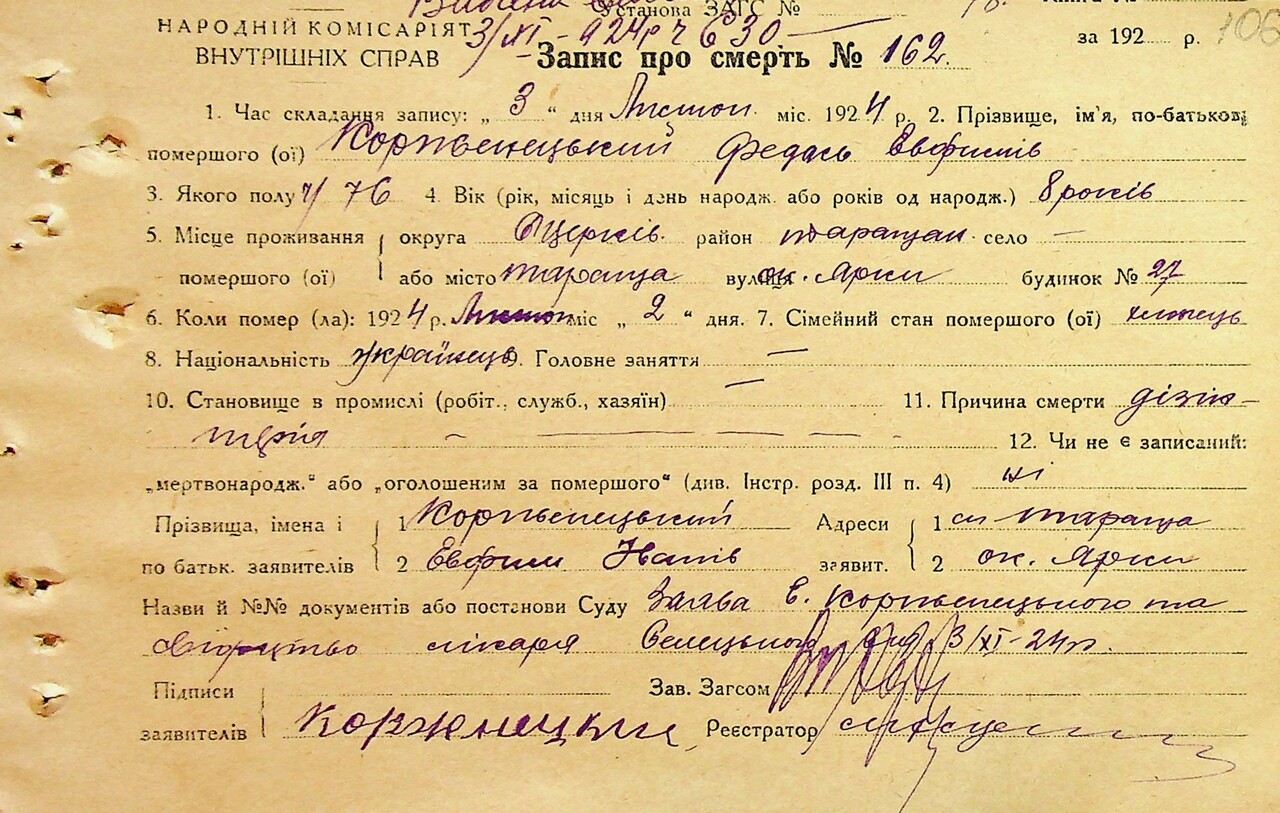 Установа ЗАГС №
НАРОДНІЙ КОМІСАРІЯТ 3/XI - 924р ч 630
за 192 р. 106
ВНУТРІШНІХ СПРАВ - Запис про смерть № 162.
1. Час складання запису: „ 3 “ дня Листоп. міс. 1924 р. 2. Прізвище, ім'я, по-батькові
помершого (ої) Корженецький Федась Евфимів
3. Якого полу ч/ 4. Вік (рік, місяць і день народж. або років од народж.) 8 років
5. Місце проживання округа БЦерків. район таращан. село —
помершого (ої) або місто тараща вулиця ок. Ярки будинок № 27
6. Коли помер (ла): 1924 р. Листоп міс „ 2 “ дня. 7. Сімейний стан помершого (ої) хлопець
8. Національність українець 9. Головне заняття —
10. Становище в промислі (робіт., служб., хазяїн) — 11. Причина смерти дізин-
терія — — — — — — 12. Чи не є записаний:
„мертвонародж.“ або „оголошеним за помершого“ (див. Інстр. розд. III п. 4) ні
Прізвища, імена і 1 Корженецький Адреси 1 тараща
по батьк. заявителів 2 Евфим заявит. 2 ок. Ярки
Назви й №№ документів або постанови Суду Заява Е. Корженецького та
свідоцтво лікаря Селецького від 3/XI-24р.
Підписи Зав. Загсом
заявителів Корженецкий Реєстратор